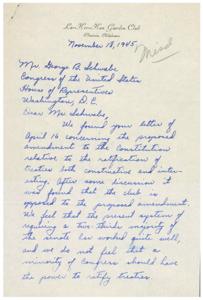 Lan-Hea-Kea Garden Club
Oklahoma
November 18, 1945.
Mr. George B. Schwabe
Congress of the United States
House of Representatives
Washington, D.C.
Dear Mr. Schwabe,
We found your letter of
April 16 concerning the proposed
amendment to the Constitution
relative to the ratification of
treaties both constructive and inter-
esting. After some discussion it
was found that the club is
opposed to the proposed amendment.
We feel that the present system of
requiring a two-thirds majority of
the senate has worked quite well,
and we do not feel that a
minority of Congress should have
the power to ratify treaties.